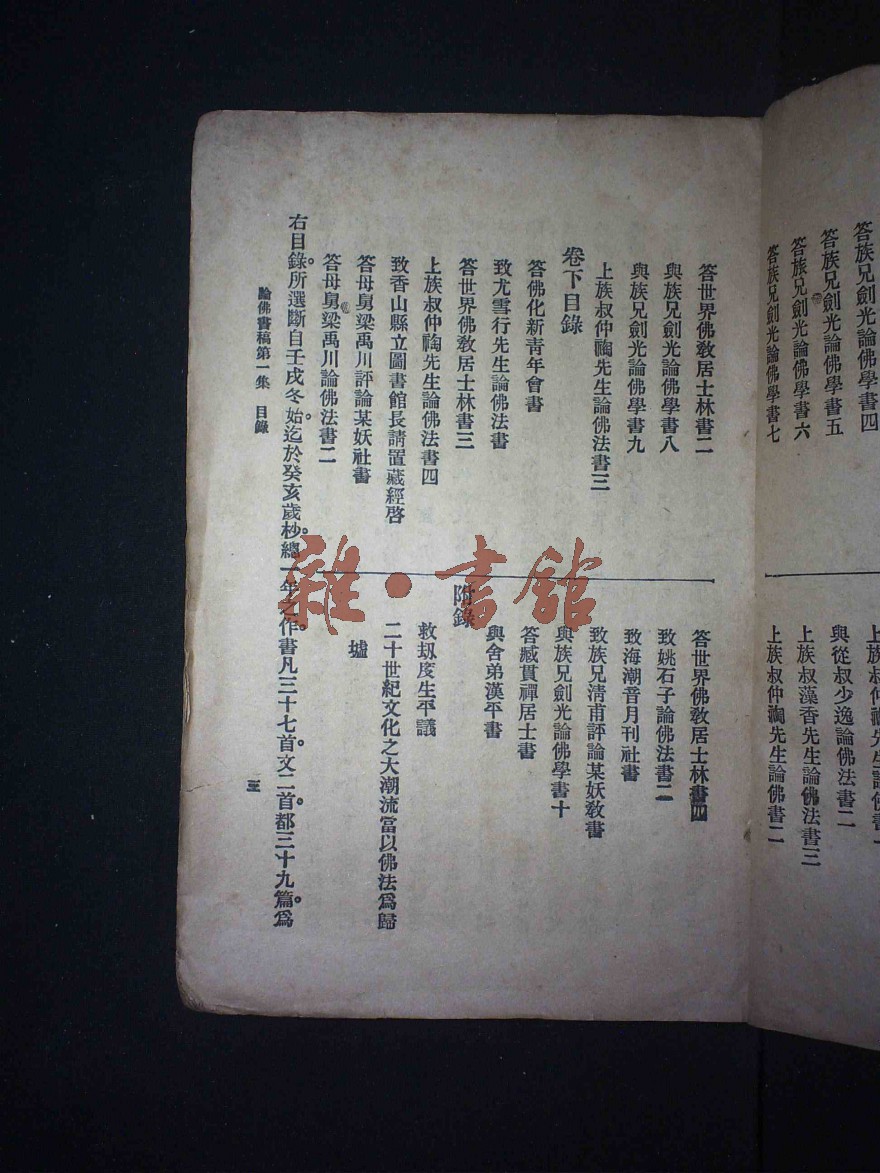 答族兄劍光論佛學書四
答族兄劍光論佛學書五
答族兄劍光論佛學書六
答族兄劍光論佛學書七
與從叔少逸論佛法書二
上族叔藻香先生論佛法書三
上族叔仲裪先生論佛書二
答世界佛敎居士林書二
與族兄劍光論佛學書八
與族兄劍光論佛學書九
上族叔仲裪先生論佛法書三
卷下目錄
答佛化新靑年會書
致尤雪行先生論佛法書
答世界佛敎居士林書三
上族叔仲裪先生論佛法書四
致香山縣立圖書館長請置藏經啓
答母舅梁禹川評論某妖社書
答母舅梁禹川論佛法書二
答世界佛敎居士林書四
致姚石子論佛法書二
致海潮音月刊社書
致族兄淸甫評論某妖敎書
與族兄劍光論佛學書十
答臧貫禪居士書
與舍弟漢平書
附錄
救刼度生平議
二十世紀文化之大潮流當以佛法爲歸
墟
右目錄。所選斷自壬戌冬始。迄於癸亥歲杪。總一年之作。書凡三十七首。文二首。都三十九篇。爲
論佛書稿第一集 目錄
三
雜·書館